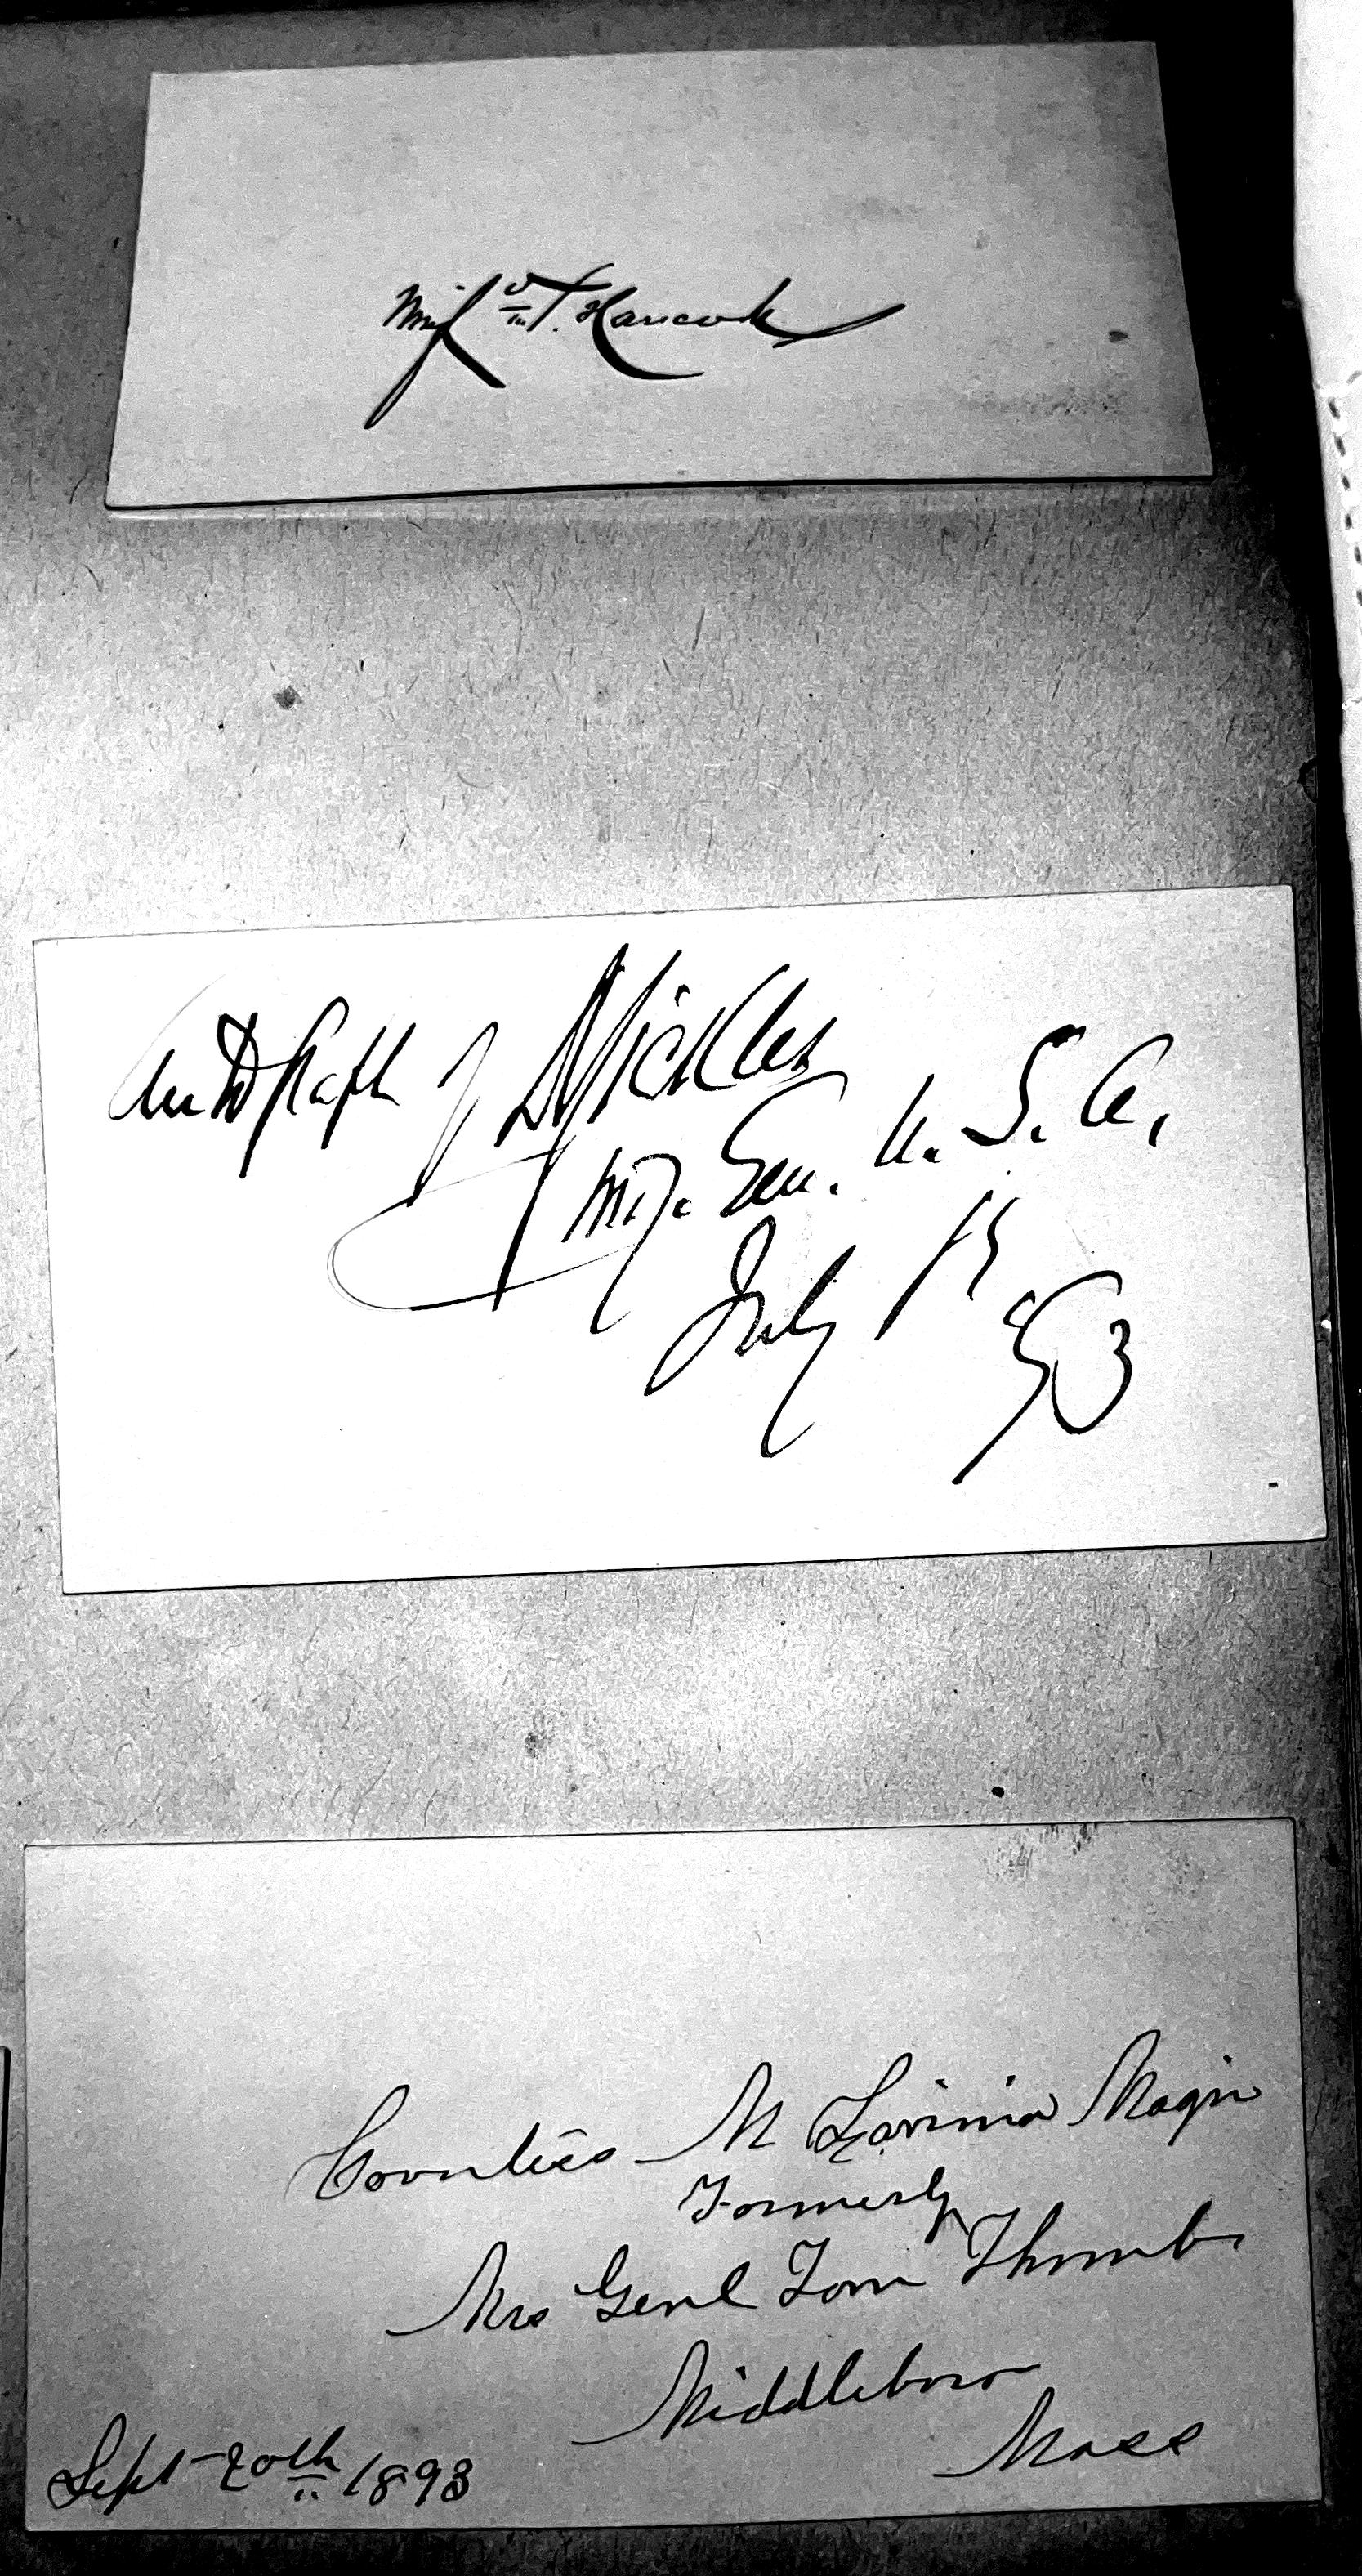 Winf'd S. Hancock
Autograph of D Sickles
Maj. Gen. U. S. A.
July 15
93
Countess M Lavinia Magri
Formerly
Mrs Genl Tom Thumb
Middleboro
Mass
Sept 20th 1893